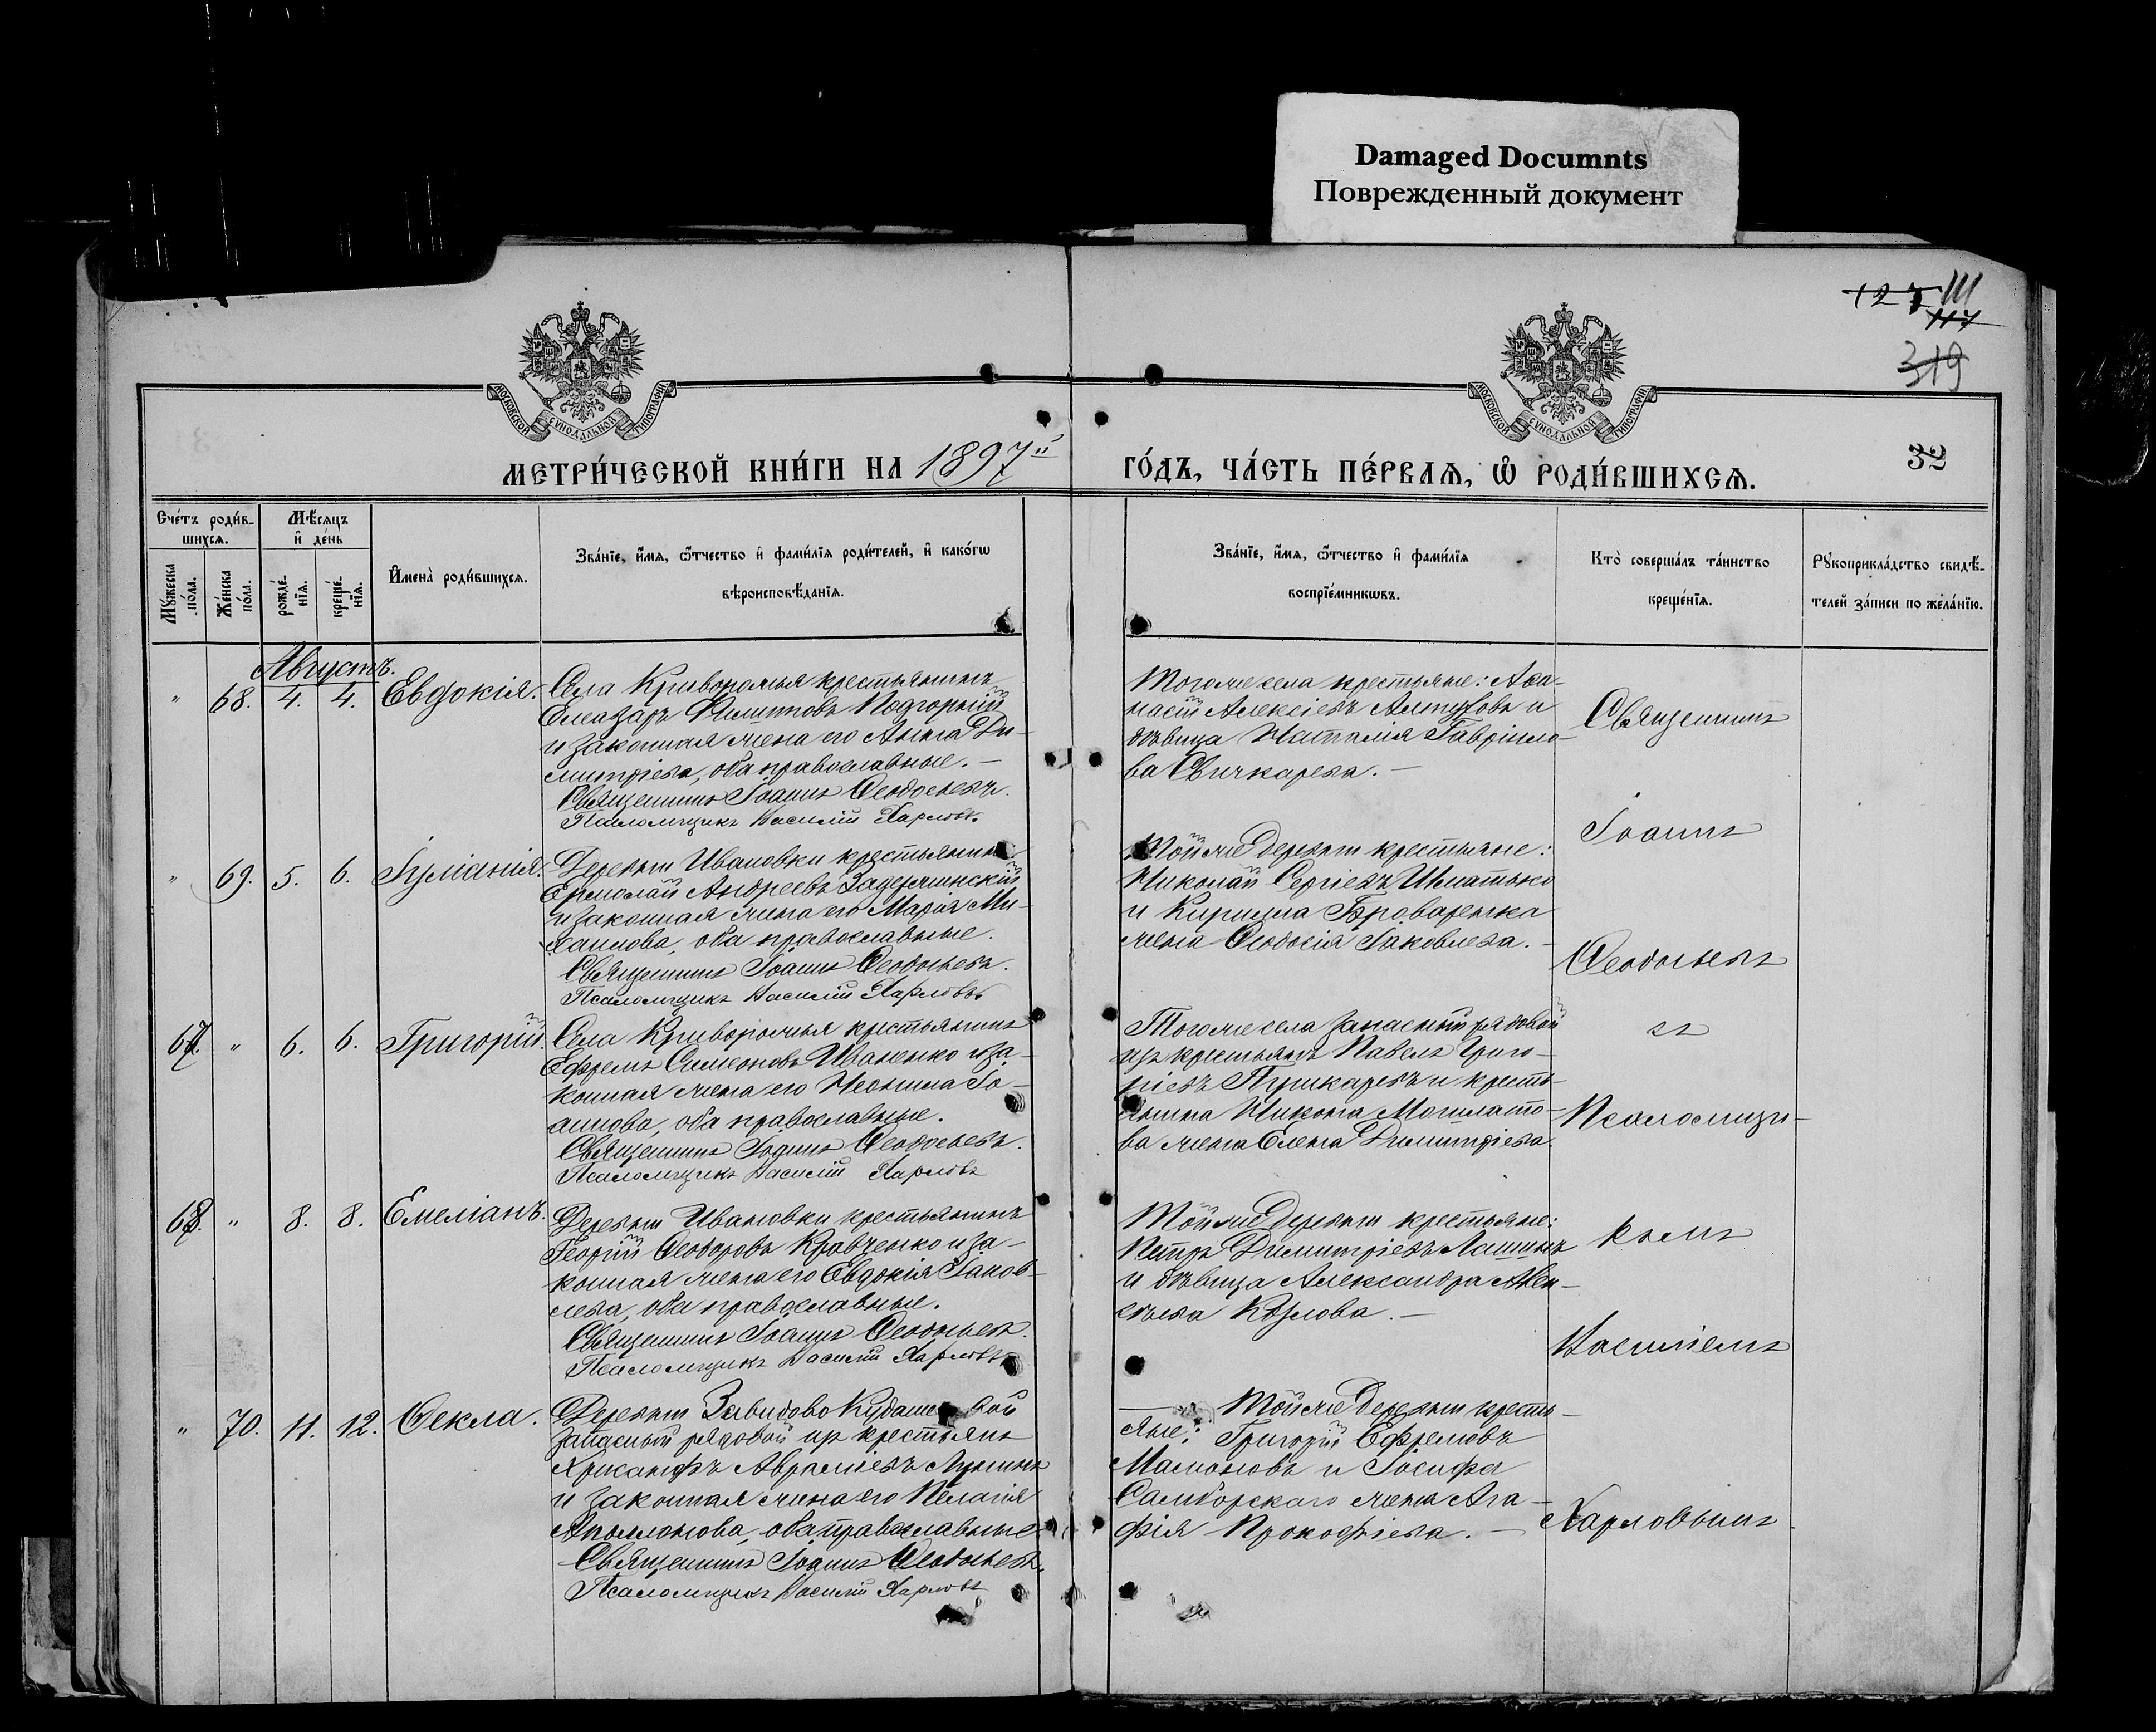 Damaged Documnts
Поврежденный документ
127 111
117
319
МОСКОВСКОЙ СѴНОДАЛЬНОЙ ТИПОГРАФІИ
МОСКОВСКОЙ СѴНОДАЛЬНОЙ ТИПОГРАФІИ
МЕТРИ́ЧЕСКОЙ КНИ́ГИ НА 1897й
ГО́ДЪ, ЧА́СТЬ ПЕ́РВАѦ, Ѡ РОДИ́ВШИХСѦ.
32
Сче́тъ роди́в-
шихсѧ.
Мѣ́сѧцъ
и҆ де́нь
Мꙋ́жеска
по́ла.
Же́нска
по́ла.
рожде́-
нїѧ.
креще́-
нїѧ.
И҆мена̀ роди́вшихсѧ.
Зва́нїе, и҆́мѧ, ѻ҆́тчество и҆ фами́лїѧ роди́телей, и҆ како́гѡ
вѣроисповѣ́данїѧ.
Зва́нїе, и҆́мѧ, ѻ҆́тчество и҆ фами́лїѧ
воспрїе́мникѡвъ.
Кто̀ соверша́лъ та́инство
креще́нїѧ.
Рꙋкоприкла́дство свидѣ́-
телей за́писи по жела́нїю.
Августъ.
" 68. 4. 4. Евдокія.
Села Криворожья крестьянинъ
Елеазаръ Филипповъ Подгорній
и законная жена его Анна Ди-
митріева, оба православные. —
Священникъ Іоаннъ Ѳеодосьевъ.
Псаломщикъ Василій Харловъ.
Тогоже села крестьяне: Аѳа-
насій Алексіевъ Алтуховъ и
дѣвица Наталія Гавріило-
ва Свичкарева. —
" 69. 5. 6. Іуліанія.
Деревни Ивановки крестьянинъ
Ермолай Андреевъ Задерчинскій
и законная жена его Марія Ми-
хаилова, оба православные.
Священникъ Іоаннъ Ѳеодосьевъ.
Псаломщикъ Василій Харловъ
Тойже деревни крестьяне:
Николай Сергіевъ Игнатько
и Кирилла Броваренка
жена Ѳеодосія Іаковлева. —
67. " 6. 6. Григорій.
Села Криворожья крестьянинъ
Ефремъ Симеоновъ Иваненко и за-
конная жена его Неонила Іо-
аннова, оба православные.
Священникъ Іоаннъ Ѳеодосьевъ.
Псаломщикъ Василій Харловъ
Тогоже села запасный рядовой
изъ крестьянъ Павелъ Григо-
ріевъ Пушкаревъ и кресть-
янина Никона
ва жена Елена Димитріева.
68. " 8. 8. Емеліанъ.
Деревни Ивановки крестьянинъ
Георгій Ѳеодоровъ Кравченко и за-
конная жена его Евдокія Іаков-
лева, оба православные.
Священникъ Іоаннъ Ѳеодосьевъ.
Псаломщикъ Василій Харловъ
Тойже деревни крестьяне:
Петръ Димитріевъ
и дѣвица Александра Алек-
сѣева Козлова. —
" 70. 11. 12. Ѳекла.
Деревни Завидово Кудашевой
запасный рядовой изъ крестьянъ
Хрисанфъ Авраміевъ
и законная жена его Пелагія
Аполлонова, оба православные.
Священникъ Іоаннъ Ѳеодосьевъ.
Псаломщикъ Василій Харловъ
Тойже деревни кресть-
яне: Григорій Ефремовъ
Мамоновъ и Іосифа
Самборскаго жена Ага-
фія Прокофіева. —
Священникъ
Іоаннъ
Ѳеодосьевъ
съ
Псаломщи-
комъ
Василіемъ
Харловымъ